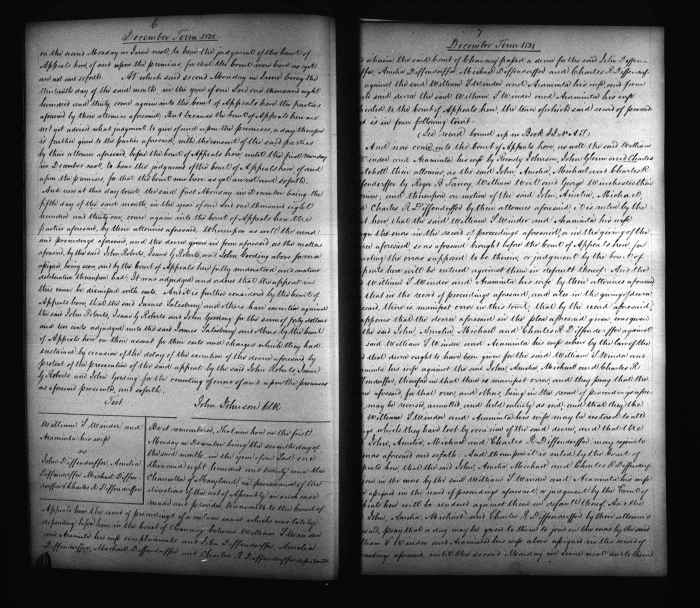 6
December Term 1831
on the second Monday in June next, to hear the judgment of the Court of
Appeals here, of and upon the premises, for that the Court now here as yet
are not &c. so forth. At which said second Monday in June being the
thirteenth day of the said month in the year of our Lord one thousand eight
hundred and thirty come again into the Court of Appeals here the parties
aforesaid by their attornies aforesaid. But because the Court of Appeals here are
not yet advised what judgment to give of and upon the premises, a day therefore
is further given to the parties aforesaid, with the consent of the said parties
by their attornies aforesaid before the Court of Appeals here until the first Monday
in December next, to hear the judgment of the Court of Appeals here of and
upon the premises, for that the Court now here as yet are not and soforth.
And now at this day to wit the said first Monday in December being the
fifth day of the said month, in the year of our Lord one thousand eight
hundred and thirty one, come again into the Court of Appeals here, the
parties aforesaid, by their attornies aforesaid. Whereupon as well the record
and proceedings aforesaid, and the decree given in form aforesaid, as the matters
aforesaid, by the said John Roberts, Isaac G Roberts and John Goeding above for error
assigned being seen, and by the Court of Appeals here fully understood, and mature
deliberation thereupon had. It was adjudged and ordered that the appeal in
this cause be dismissed with costs. And it is further considered by the Court of
Appeals here, that the said James Salisbury and others have execution against
the said John Roberts, Isaac G Roberts and John Goeding, for the sum of forty dollars
and ten cents adjudged unto the said James Salisbury and others by the Court
of Appeals here on their assent for their costs and charges which they had
sustained by occasion of the delay of the execution of the decree aforesaid by
pretext of the prosecution of the said appeal by the said John Roberts Isaac
G Roberts and John Goeding for the correcting of errors of and upon the premises
as aforesaid prosecuted, and soforth.
Test John Johnson Clk
William S Winder and
Araminta his wife
vs
John Diffenderffer, Amelia
Diffenderffer Michael Diffen
derffer & Charles R Diffenderffer
Be it remembered, That on the first
Monday in December being the seventh day of
the said month, in the year of our Lord one
thousand eight hundred and twenty nine the
Chancellor of Maryland in pursuance of the
directions of the act of Assembly in such case
made and provided, transmits to the Court of
Appeals here the record of proceedings of a certain cause which was lately
depending before him in the Court of Chancery between William S Winder
and Araminta his wife complainants and John Diffenderffer, Amelia
Diffenderffer, Michael Diffenderffer and Charles R Diffenderffer defendants
7
December Term 1831
wherein the said Court of Chancery passed a decree for the said John Diffen
ffer, Amelia Diffenderffer Michael Diffenderffer and Charles R Diffender
against the said William S Winder and Araminta his wife, and from
said decree the said William S Winder and Araminta his wife
pealed to the Court of Appeals here, the tenor of which said record of proceed
is in form following to wit.
(See record bound up in Book
And now come into the Court of Appeals here, as well the said William
Winder and Araminta his wife by Reverdy Johnson, John Glenn and Charles
their attornies, as the said John, Amelia, Michael and Charles R
ffenderffer by Roger B Taney William Wirt and George Winchester their
nies, and thereupon on motion of the said John, Amelia, Michael
Charles R Diffenderffer by their attornies aforesaid it is ruled by the
t here that the said William S Winder and Araminta his wife
gn the errors in the record of proceedings aforesaid, or in the giving of the
ree aforesaid, so as aforesaid brought before the Court of Appeals here for
recting the errors supposed to be therein, or judgment by the Court of
peals here will be entered against them in default thereof. And the
William S Winder and Araminta his wife by their attornies aforesaid
that in the record of proceedings aforesaid, and also in the giving of decree
said, there is manifest error in this to wit, that by the record aforesaid,
appears that the decree aforesaid in the plea aforesaid given, was given
the said John, Amelia, Michael and Charles R Diffenderffer against
said William S Winder and Araminta his wife when by the law of the
d that decree ought to have been given for the said William S Winder and
minta his wife against the said John Amelia Michael and Charles R
fenderffer, therefore in that there is manifest error; and they pray that the
ree aforesaid, for that error, and others, being in the record of proceedings afore
may be reversed, annulled, and held entirely as void, and that they the
William S Winder and Araminta his wife may be restored to all
ngs which they have lost by occasion of the said decree, and that the
John, Amelia, Michael and Charles R Diffenderffer may rejoin to
rors aforesaid and soforth. And thereupon it is ruled by the Court of
peals here that the said John, Amelia Michael and Charles R Diffenderffer
join in the errors by the said William S Winder and Araminta his wife
assigned in the record of proceedings aforesaid, or judgment by the Court of
peals here will be rendered against them in default thereof. And the
John, Amelia, Michael and Charles R Diffenderffer by their attornies
said, pray that a day may be given to them to join in the errors by the said
lliam S Winder and Araminta his wife above assigned in the record of
ceedings aforesaid, until the second Monday in June next and to them